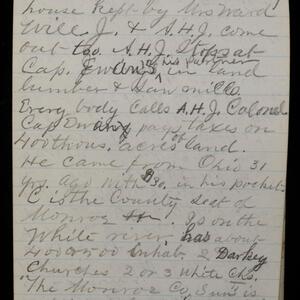 house kept by Mrs Ward
Will, J. & A.H.J. come
out too. A.H.J. Stops at
Cap. Ewing's his partner in land
lumber & Saw mills.
Every body Calls A.H.J. Colonel
Cap Ewing pays taxes on
400 thous. acres land.
He came from Ohio 31
yrs. ago with $30. in his pocket
C. is the County Seat of
Monroe Is on the
White river, has about
400 or 500 inhab. 2 Darkey
Churches 2 or 3 White Chs.
"The Monroe Co. Sun" is